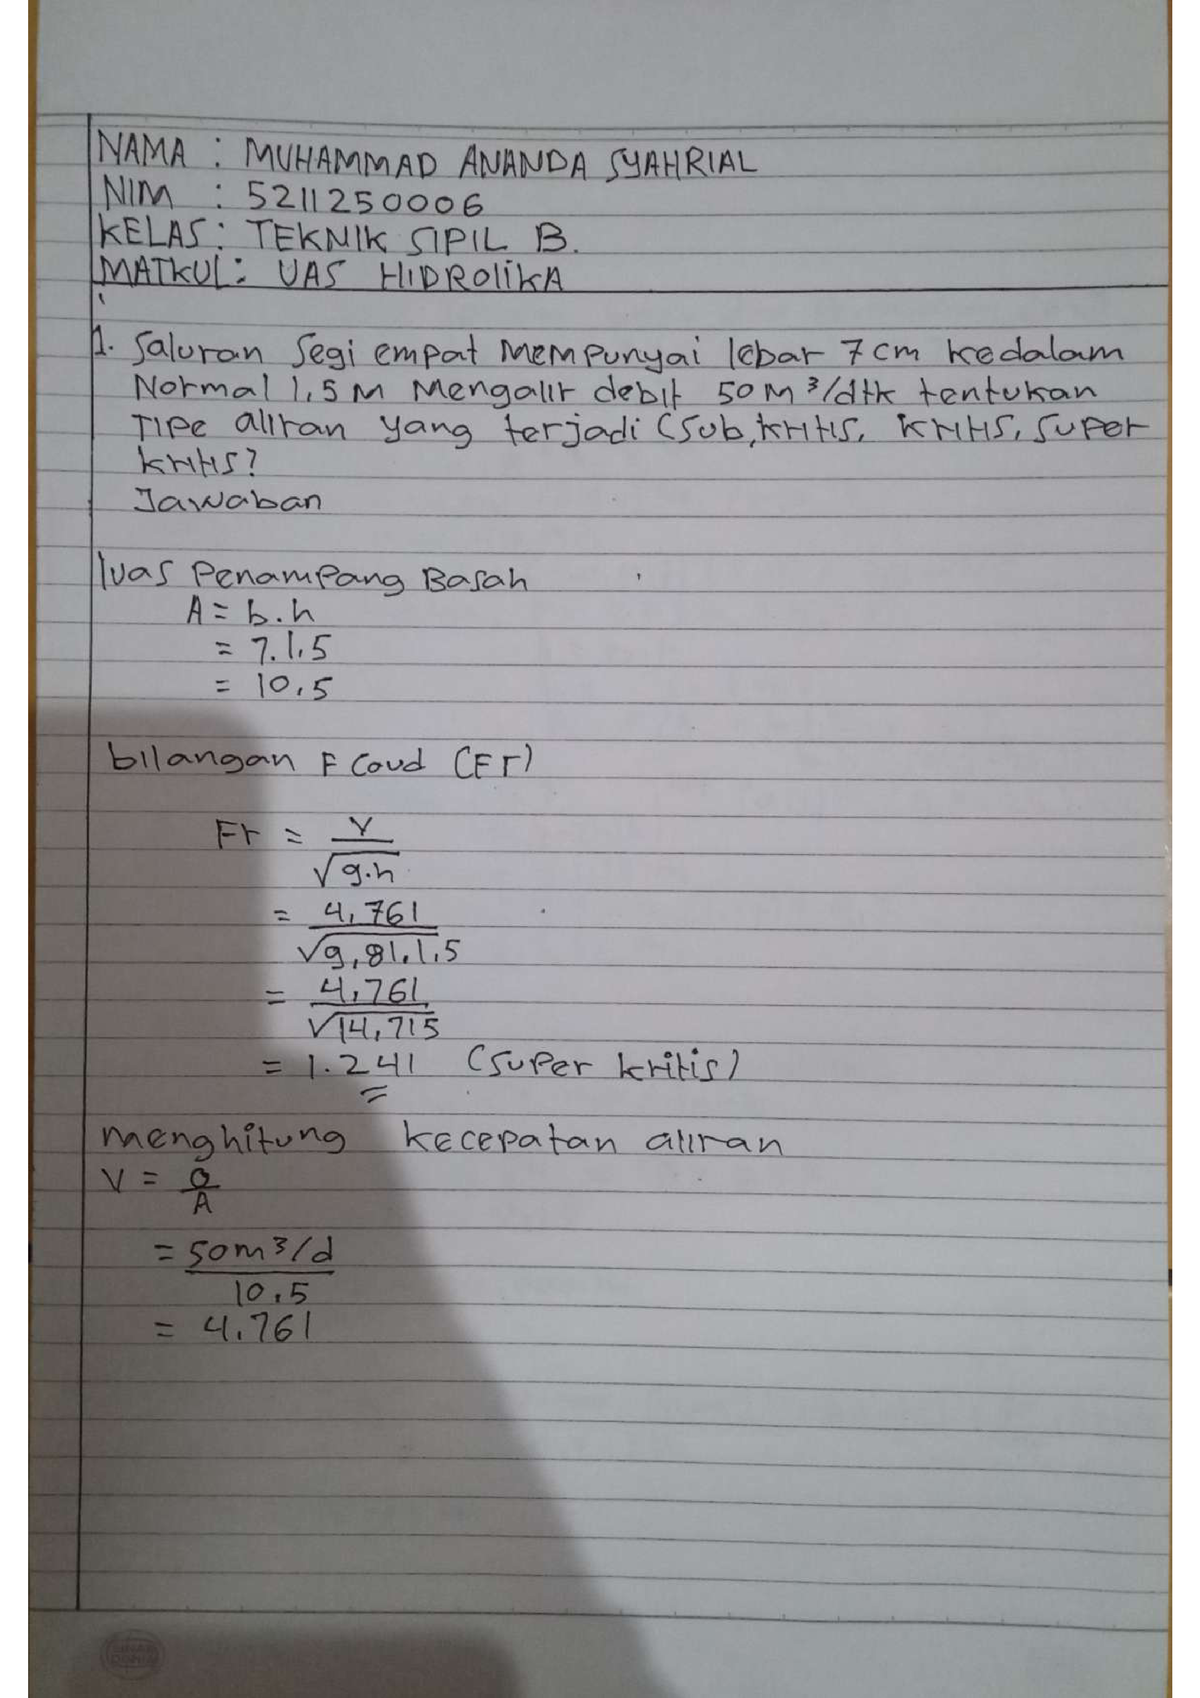 NAMA : MUHAMMAD ANANDA SYAHRIAL
NIM : 5211250006
KELAS : TEKNIK SIPIL B.
MATKUL : UAS HIDROliKA
1. Saluran Segi empat Mempunyai lebar 7 cm kedalam
Normal 1,5 M Mengalir debit 50 M³/dtk tentukan
Tipe aliran yang terjadi (Sub,kritis, kritis, Super
kritis?
Jawaban
luas Penampang Basah
A = b.h
= 7.1,5
= 10,5
bilangan F Coud (Fr)
Fr = V / √g.h
= 4,761 / √9,81.1,5
= 4,761 / √14,715
= 1.241 (Super kritis)
menghitung kecepatan aliran
V = Q / A
= 50 m³/d / 10,5
= 4,761